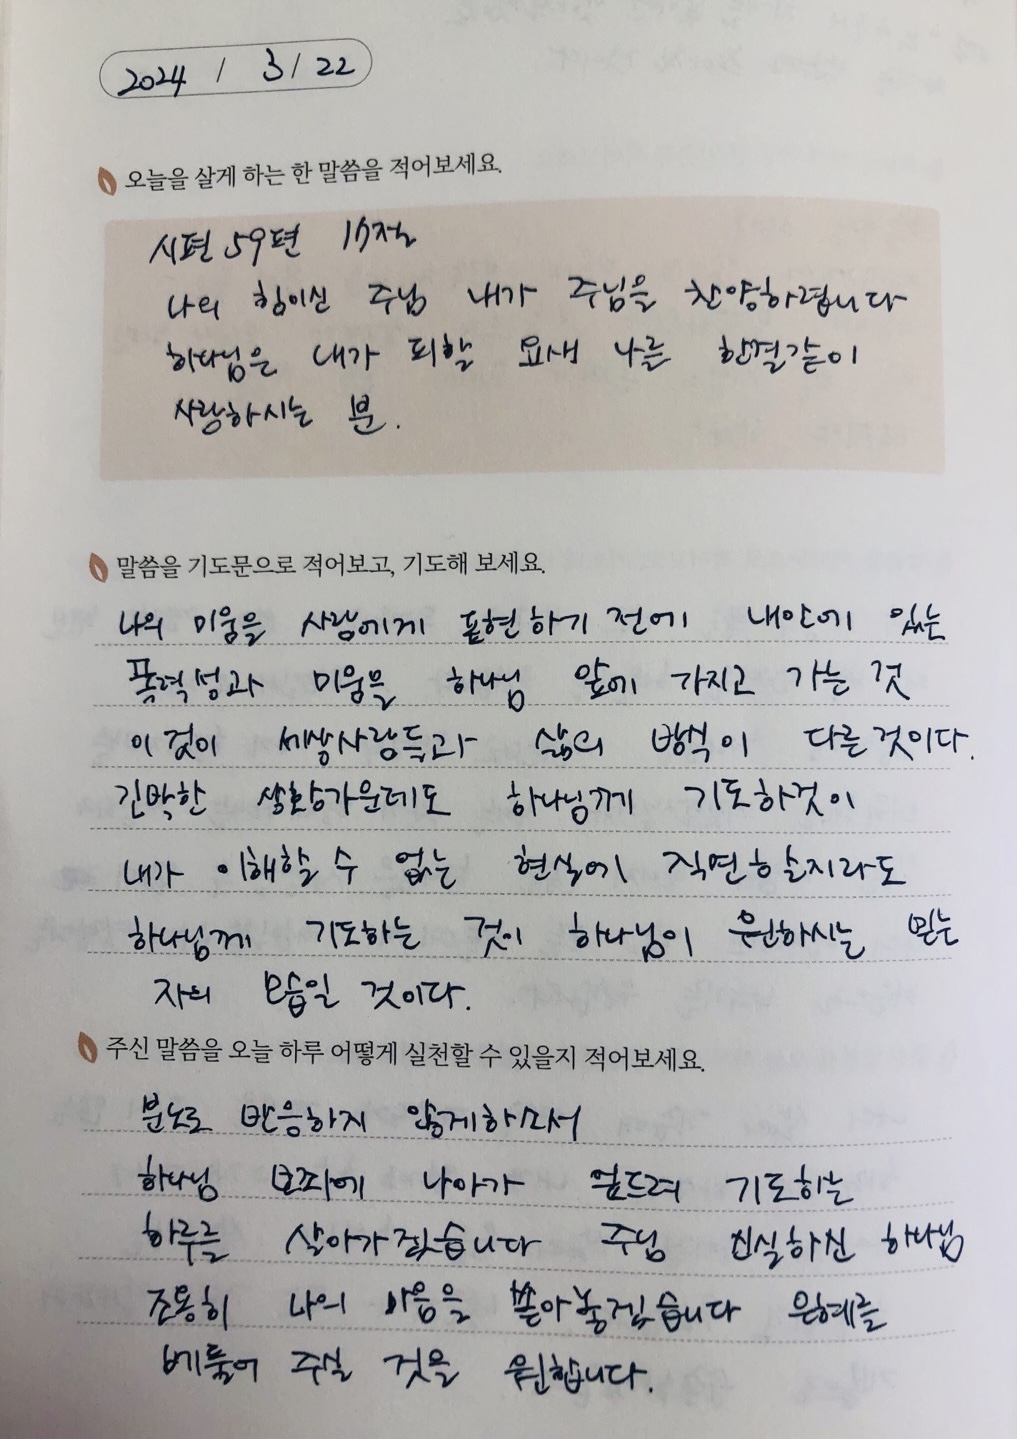 2024 / 3 / 22
오늘을 살게 하는 한 말씀을 적어보세요.
시편 59편 17절
나의 힘이신 주님 내가 주님을 찬양하렵니다
하나님은 내가 피할 요새 나를 한결같이
사랑하시는 분.
말씀을 기도문으로 적어보고, 기도해 보세요.
나의 미움을 사람에게 표현하기 전에 내안에 있는
폭력성과 미움을 하나님 앞에 가지고 가는 것
이것이 세상사람들과 삶의 방식이 다른것이다.
긴박한 상황가운데도 하나님께 기도하것이
내가 이해할 수 없는 현실에 직면할지라도
하나님께 기도하는 것이 하나님이 원하시는 믿는
자의 모습일 것이다.
주신 말씀을 오늘 하루 어떻게 실천할 수 있을지 적어보세요.
분노로 반응하지 않게하소서
하나님 보좌에 나아가 엎드려 기도하는
하루를 살아가겠습니다 주님 신실하신 하나님
조용히 나의 마음을 쏟아놓겠습니다 은혜를
베풀어 주실 것을 원합니다.